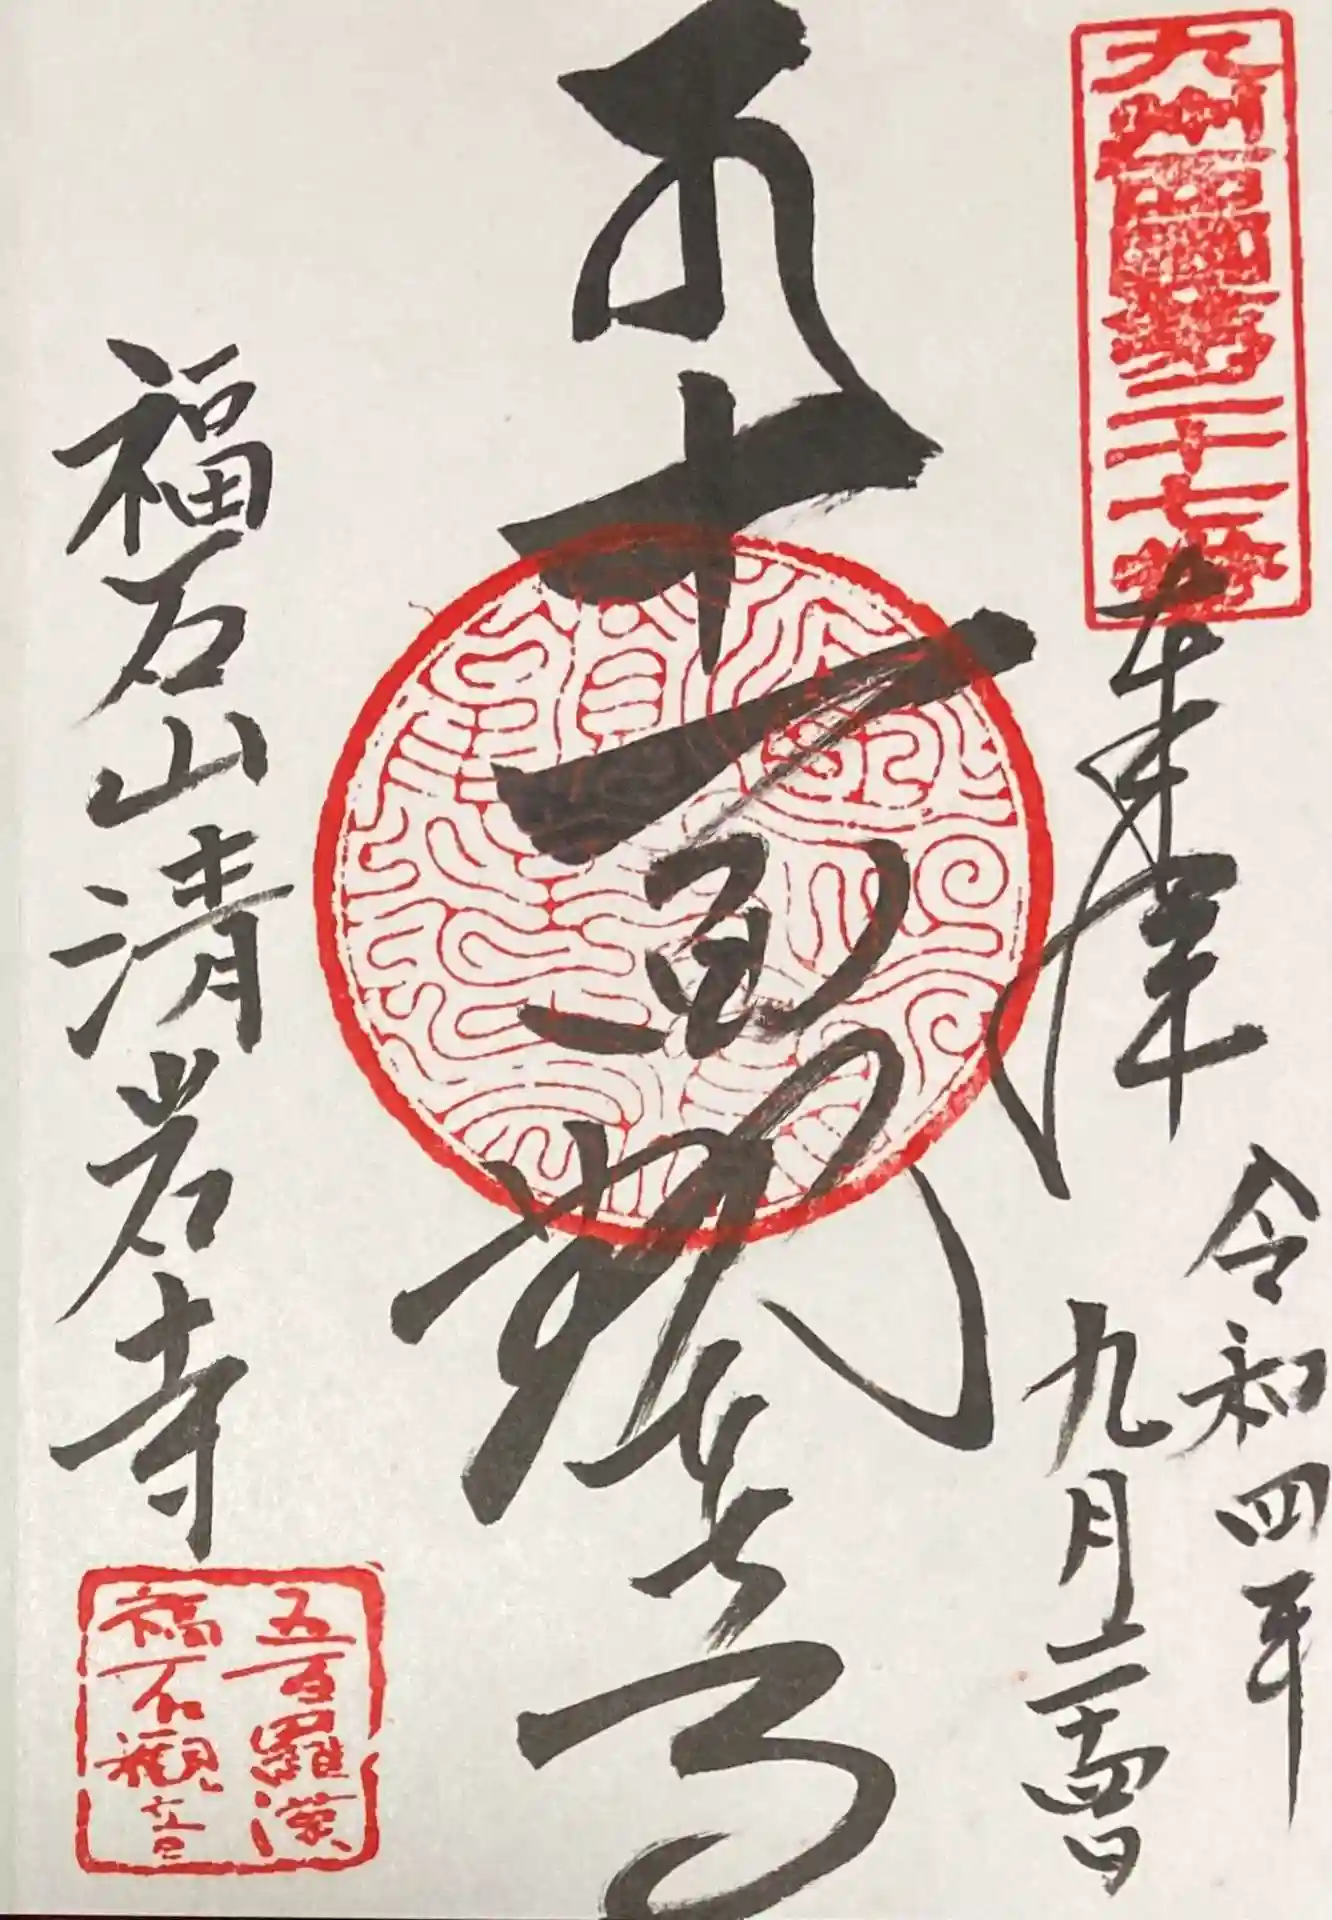 九州西國第二十七番
奉拝
令和四年
九月二十四日
十一面観世音
福石山清岩寺
五百羅漢
福石観音